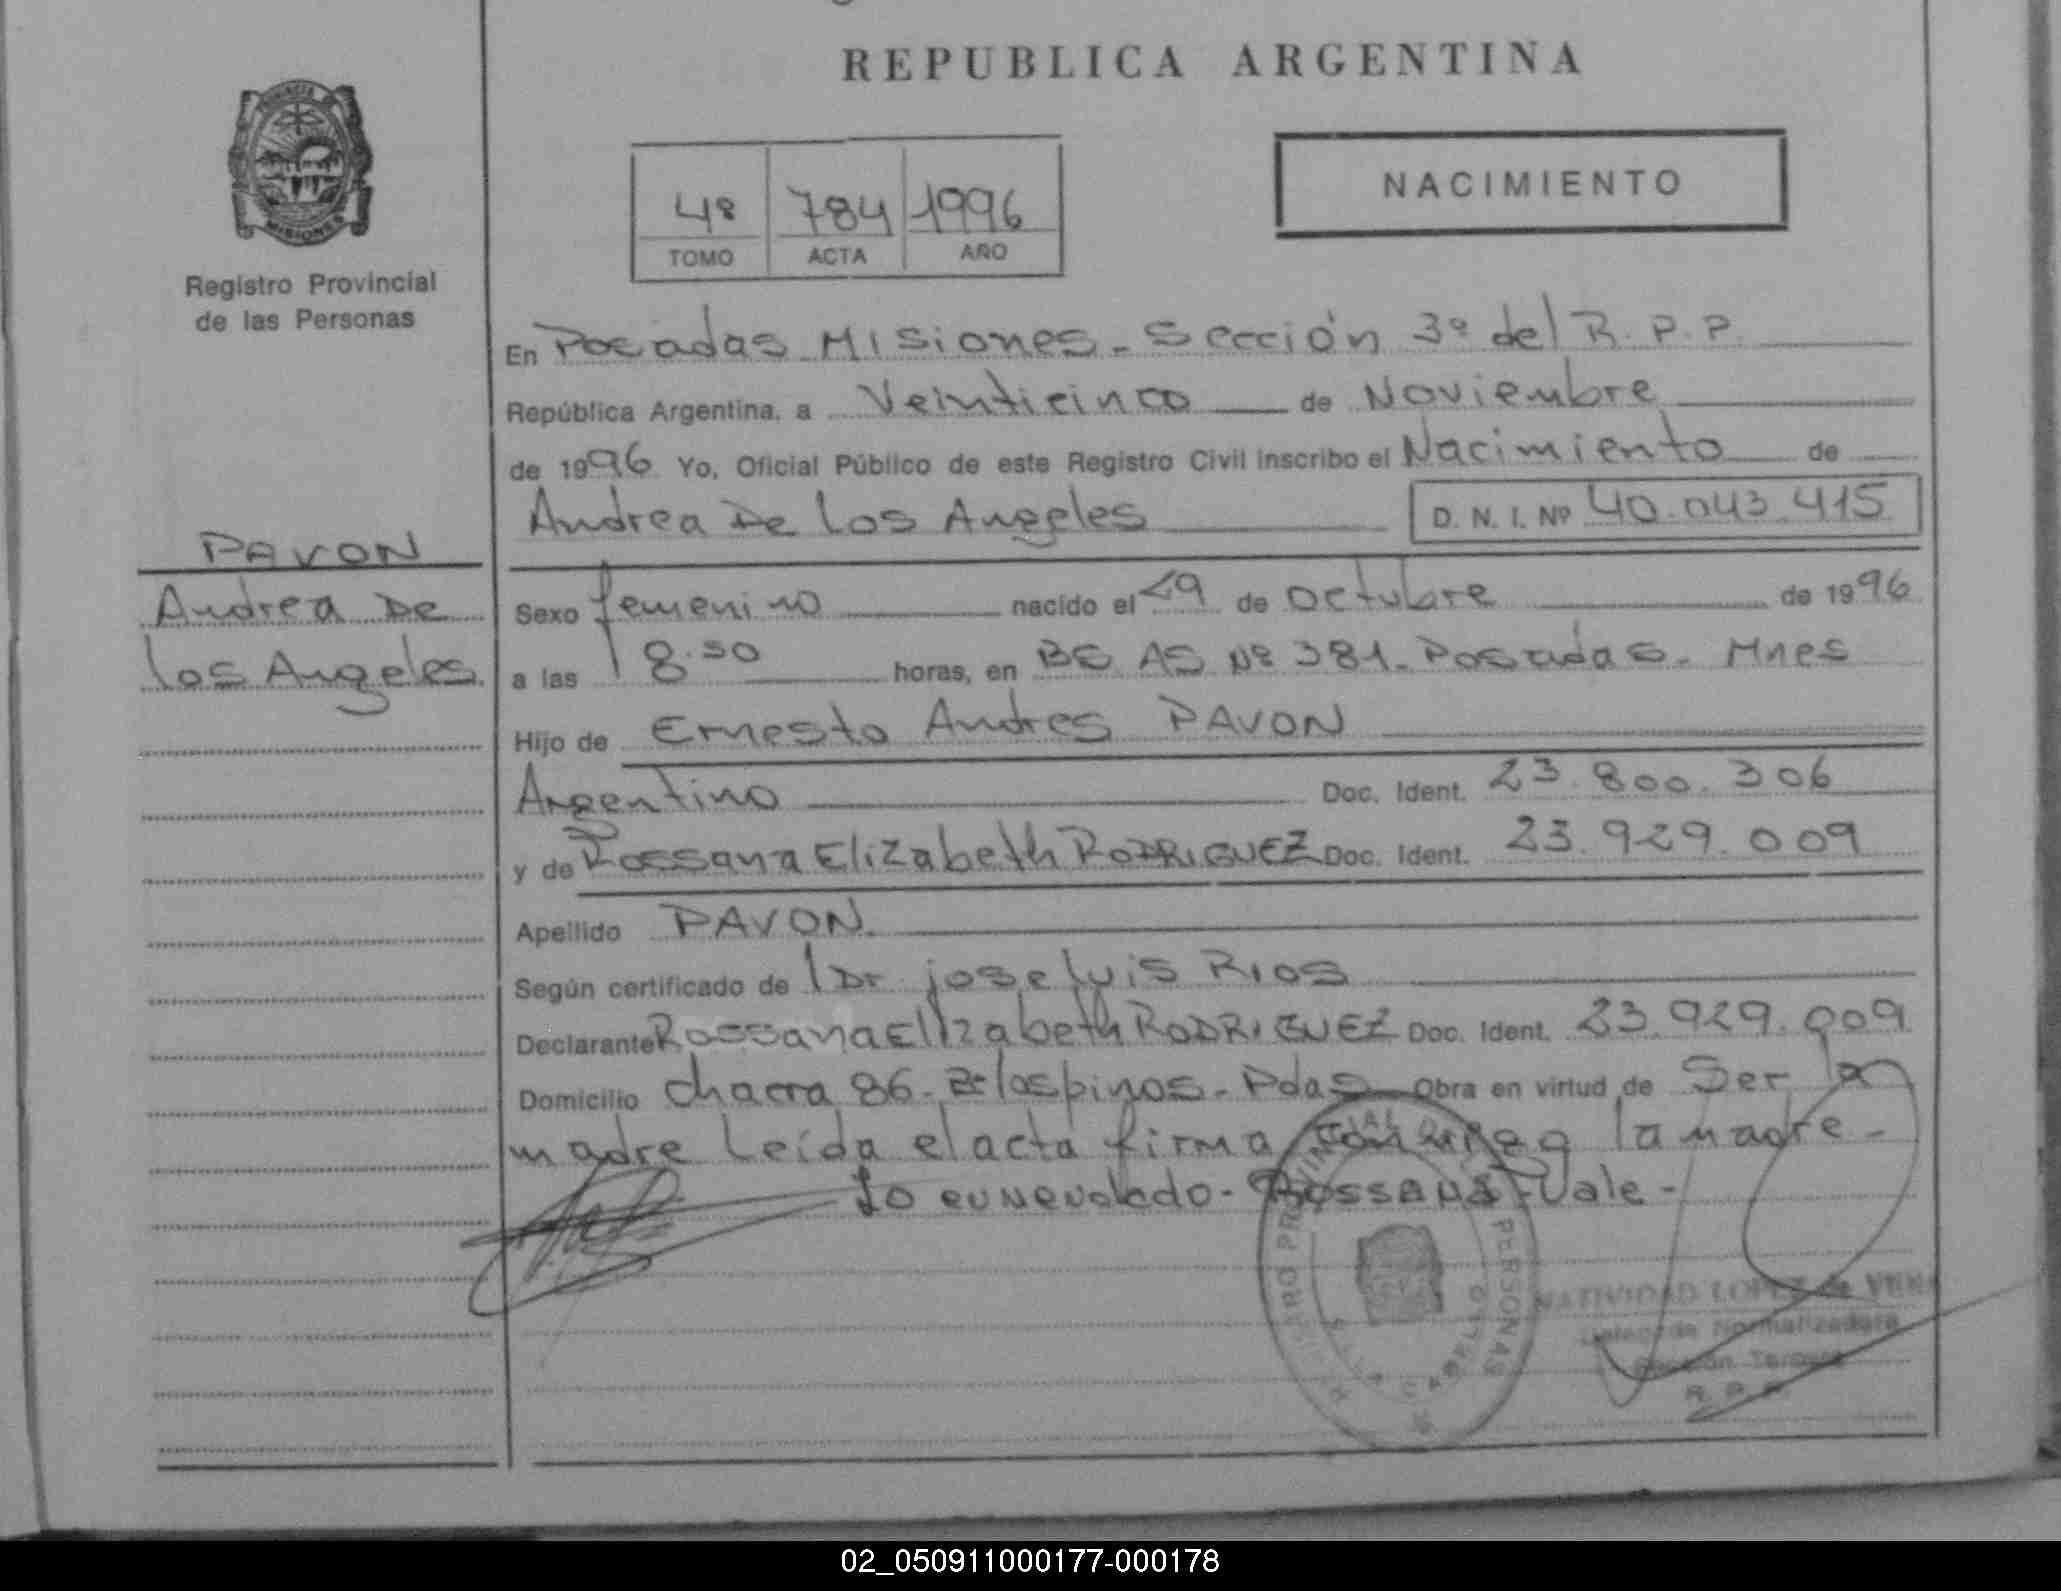 REPUBLICA ARGENTINA
PROVINCIA
MISIONES
Registro Provincial
de las Personas
4º 784 1996
TOMO ACTA AÑO
NACIMIENTO
En Posadas Misiones - Sección 3º del R.P.P.
República Argentina, a Veinticinco de Noviembre
de 1996 Yo, Oficial Público de este Registro Civil inscribo el Nacimiento de
Andrea De Los Angeles D. N. I. Nº 40.043.415
PAVON
Andrea De
los Angeles
Sexo femenino nacido el 29 de octubre de 1996
a las 18.50 horas, en BS AS Nº 381. Posadas. Mnes
Hijo de Ernesto Andres PAVON
Argentino Doc. Ident. 23.800.306
y de Rossana Elizabeth RODRIGUEZ Doc. Ident. 23.929.009
Apellido PAVON.
Según certificado de l Dr. jose luis Rios
Declarante Rossana Elizabeth RODRIGUEZ Doc. Ident. 23.929.009
Domicilio chacra 86. los pinos - Pdas Obra en virtud de Ser la
madre Leída el acta firma conmigo la madre -
Lo enmendado - Rossana - Vale -
REGISTRO PROVINCIAL DE PERSONAS
NATIVIDAD LOPEZ de
Delegada Normalizadora
Sección Tercera
R. P. P.
02_050911000177-000178